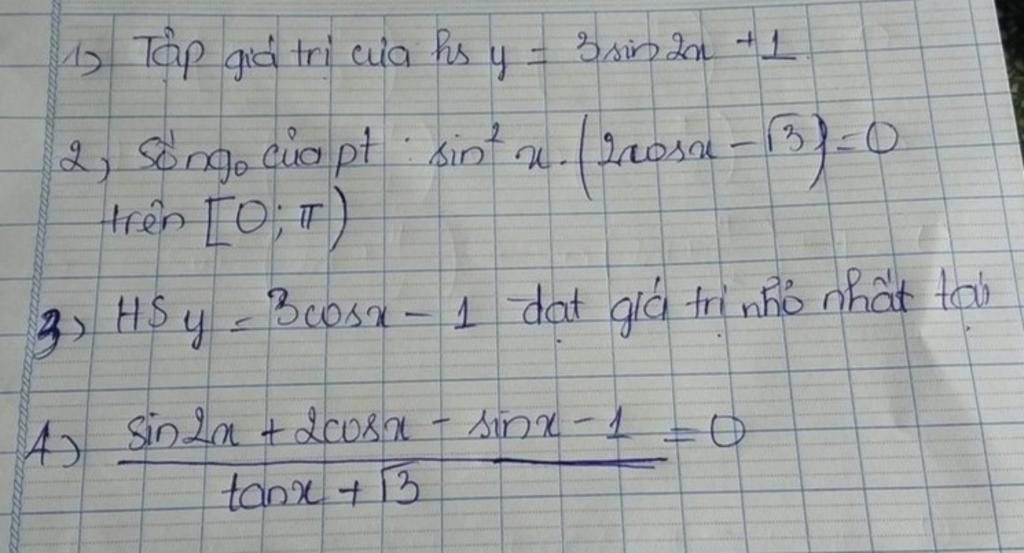 1) Tập giá trị của hs y = 3sin2x + 1
2, Số ngo của pt : sin² x.(2cosx - √3) = 0
trên [0; π)
3, HS y = 3cosx - 1 đạt giá trị nhỏ nhất tại
4) (sin2x + 2cosx - sinx - 1)/(tanx + √3) = 0